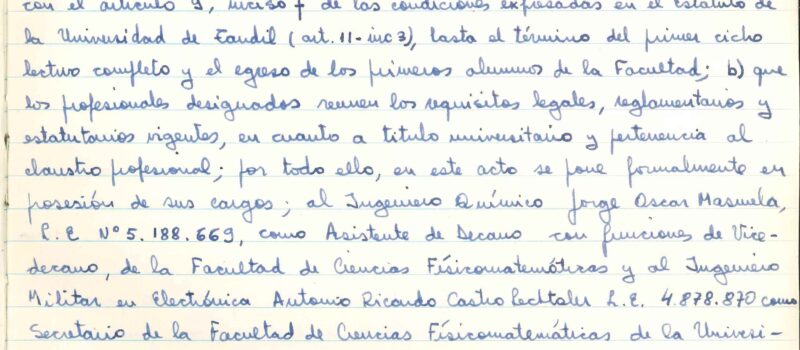 con el artículo 9, inciso f de las condiciones expresadas en el estatuto de
la Universidad de Tandil (art. 11 - inc 3), hasta el término del primer ciclo
lectivo completo y el egreso de los primeros alumnos de la Facultad; b) que
los profesionales designados reunen los requisitos legales, reglamentarios y
estatutarios vigentes, en cuanto a titulo universitario y pertenencia al
claustro profesional; por todo ello, en este acto se pone formalmente en
posesión de sus cargos; al Ingeniero Químico Jorge Oscar Masmela,
L.E N° 5.188.669, como Asistente de Decano con funciones de Vice-
decano, de la Facultad de Ciencias Físicomatemáticas y al Ingeniero
Militar en Electrónica Antonio Ricardo Castro Lechtaler L.E. 4.878.870 como
Secretario de la Facultad de Ciencias Físicomatemáticas de la Universi-